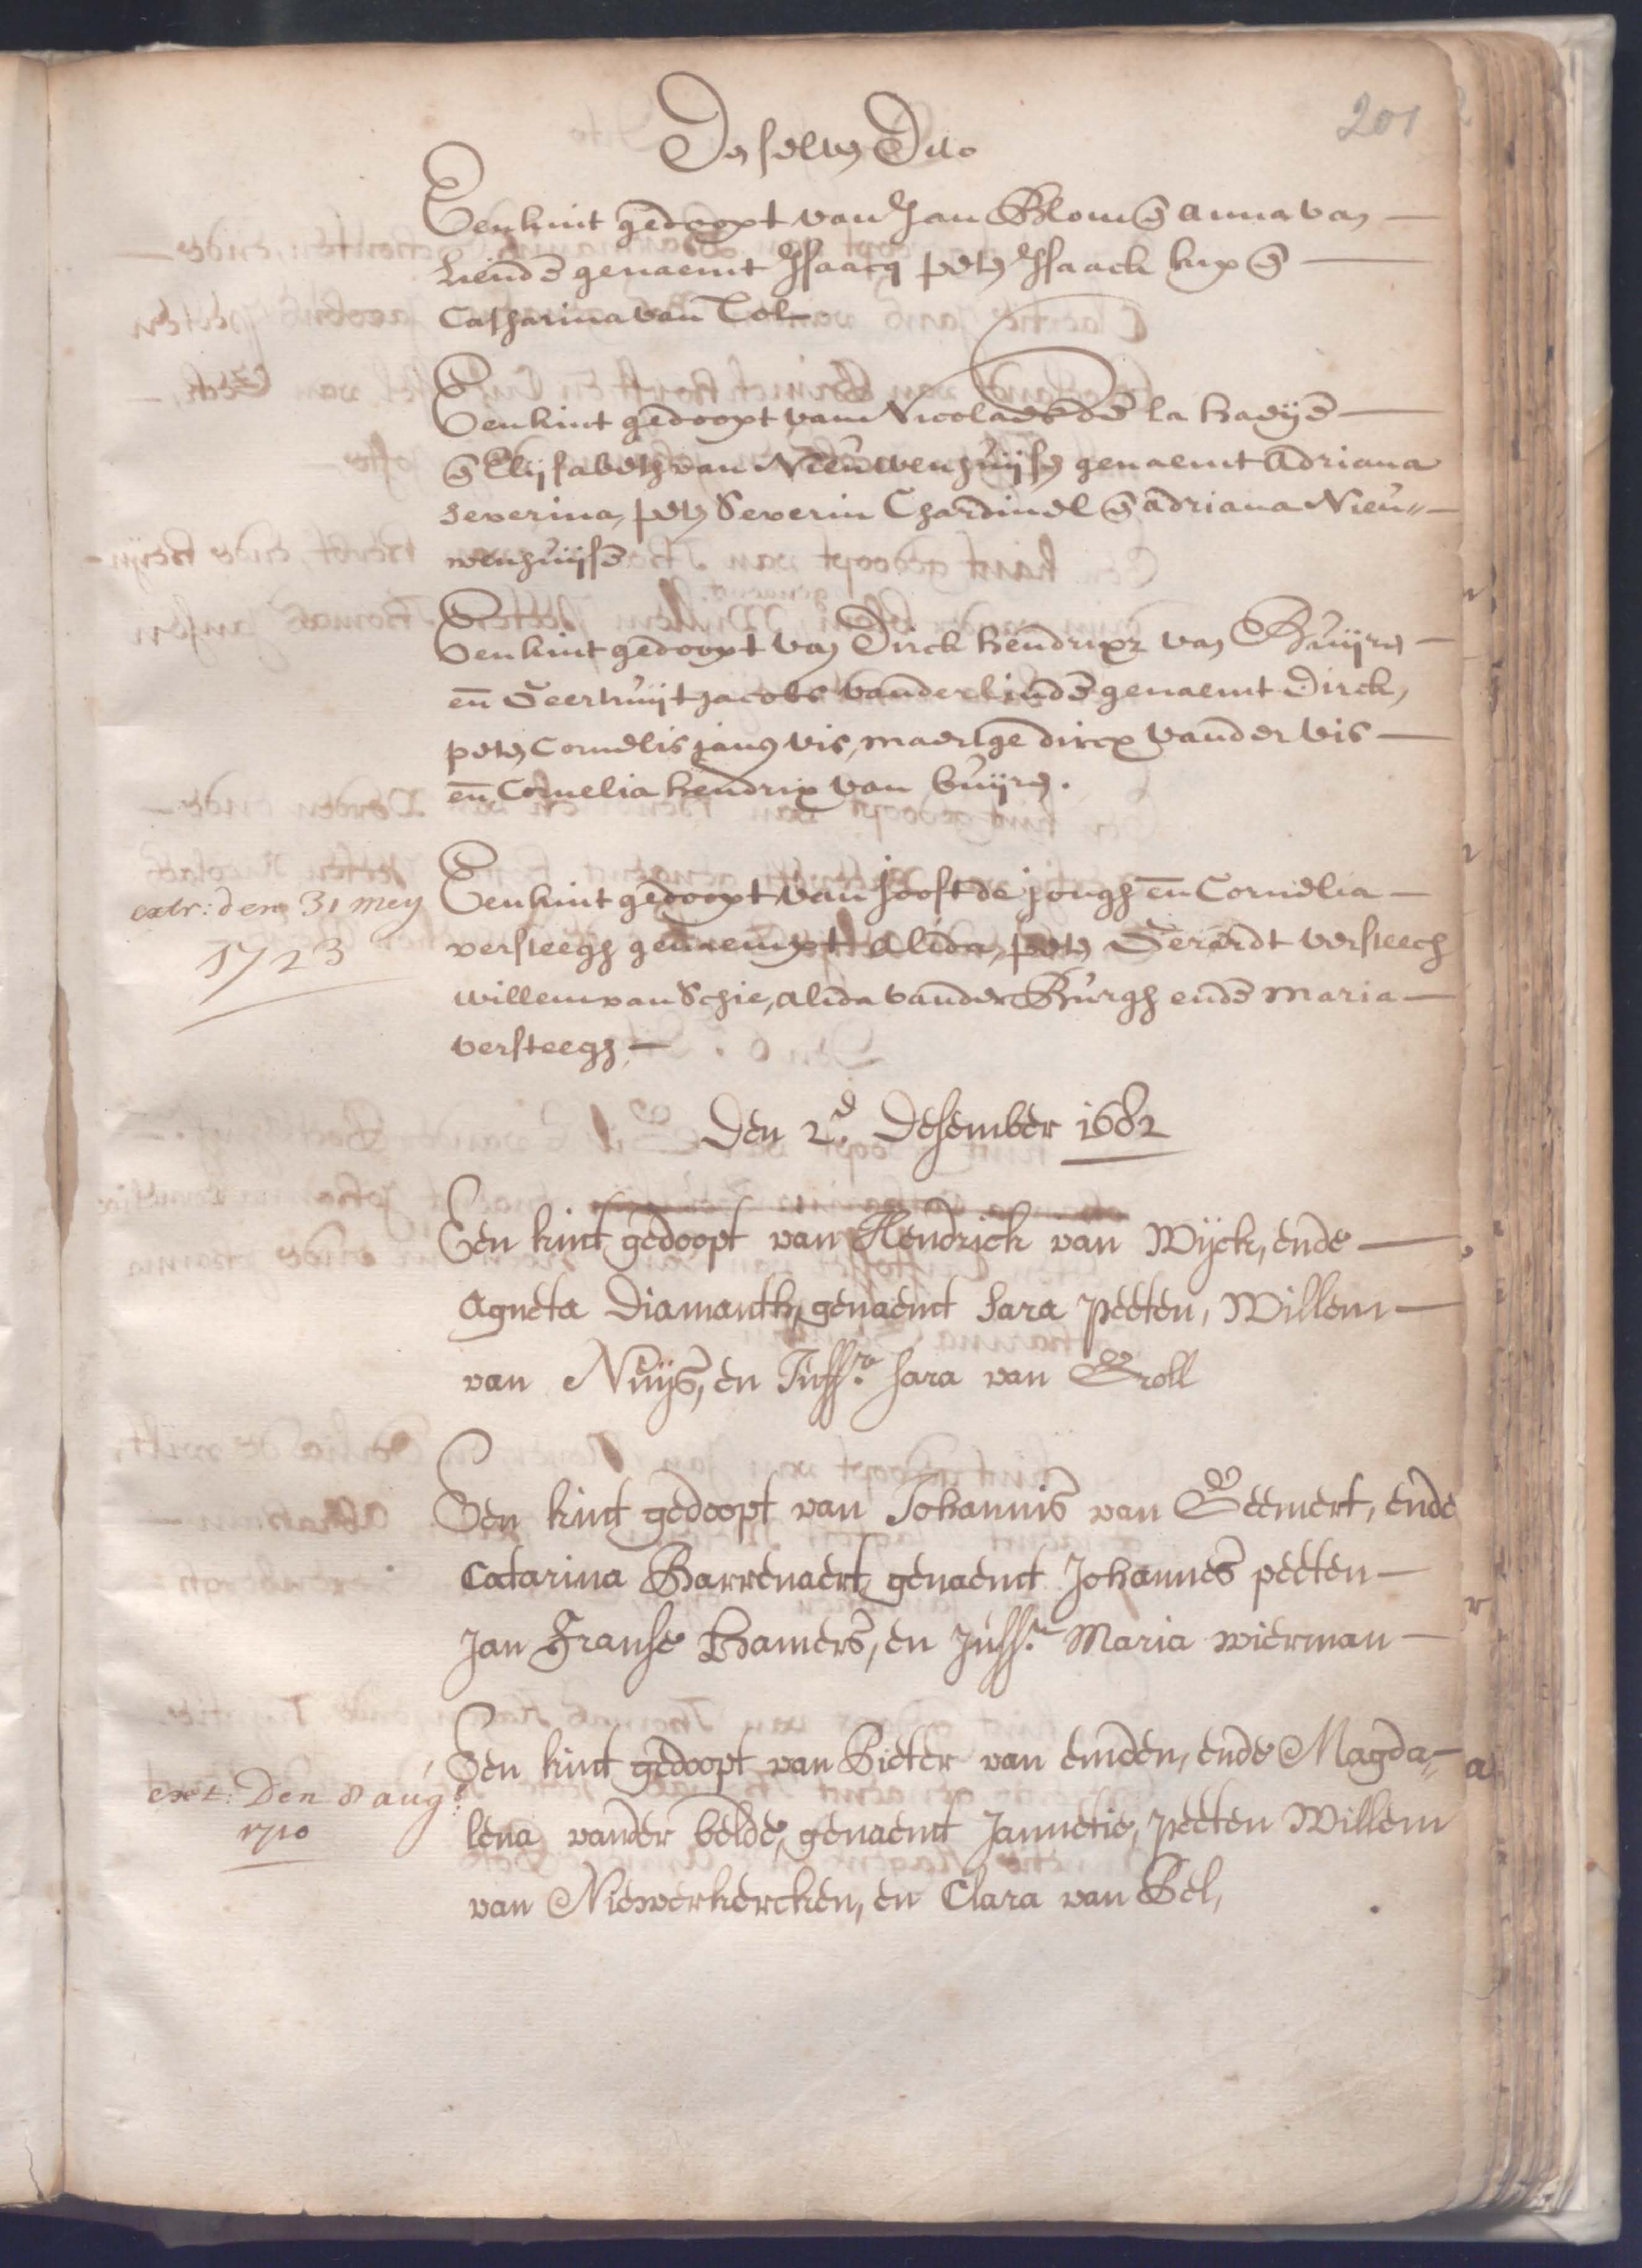 201
De selve Dito
Een kint gedoopt van Jan Blom en Anna van
Liende genaemt Isaacq peten Isaack hix en
Catharina van Tol
Een kint gedoopt van Nicolaes de la haeije
en Elijsabeth van Nieuwenhuijsen genaemt Adriana
severina, peten Severin Chardinel en adriana Nieu„
wenhuijse
Een kint gedoopt van Dirck hendrixz van Buijren
en̄ Geertruijt jacobs vander linde genaemt Dirck,
peten Cornelis jans vis, maertge dircx vander vis
en̄ Cornelia hendrix van buijren.
Een kint gedoopt van joost de jongh en̄ Cornelia
extr: den 31 meij
1723
versteegh genaempt alida, peten Gerardt versteech
willem van Schie, alida vander Burgh ende maria
versteegh
Den 2.d Desember 1682
Een kint gedoopt van Hendrick van Wijck, ende
Agneta Diamanth, genaemt Sara peeten, Willem
van Nuijs, en Juff.r Sara van Groll
Een kint gedoopt van Johannis van Geemert, ende
Catarina Barrenaert, genaemt Johannes peeten
Jan Franse Hamers, en Juff.r Maria wierman
Een kint gedoopt van Pieter van emden, ende Magda„
ext: Den 8 aug:
1710
lena vander belde, genaemt Jannetie, peeten Willem
van Niewerkercken, en Clara van Bel,